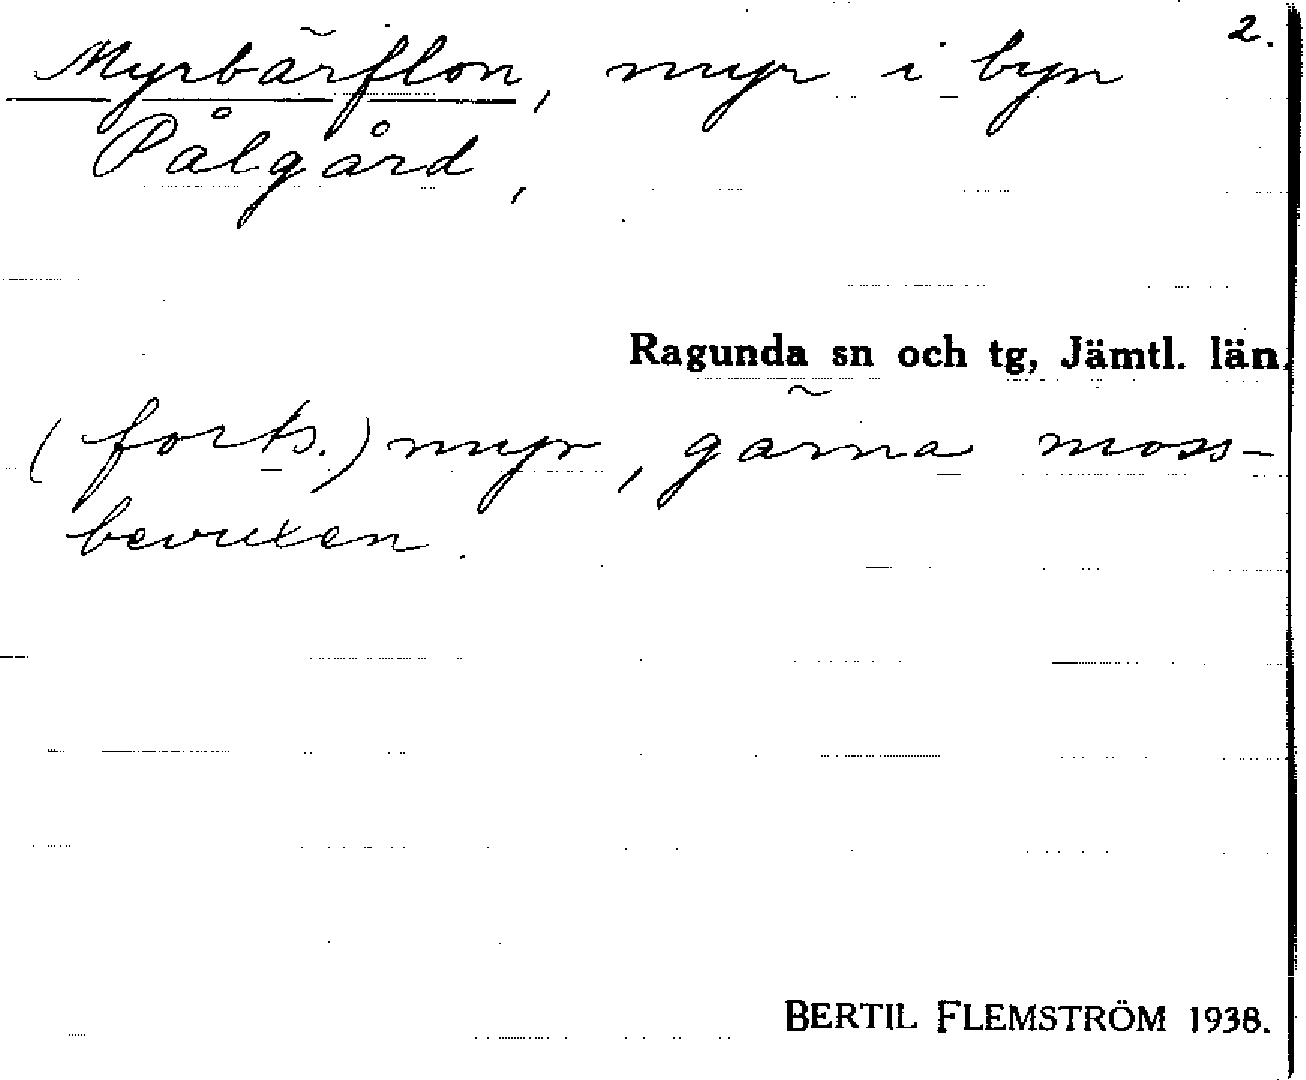 2.
Myrbärflon, myr i byn
Pålgård,
Ragunda sn och tg, Jämtl. län.
(forts.) myr, gärna moss-
bevuxen.
BERTIL FLEMSTRÖM 1938.